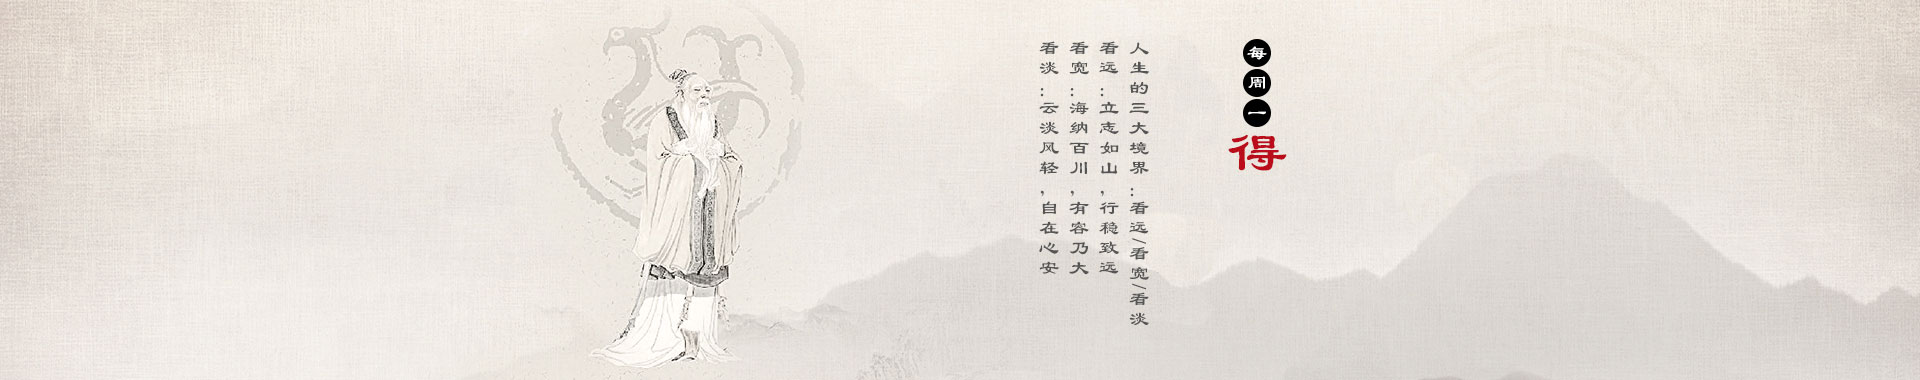 每周一得
人生的三大境界：看远/看宽/看淡
看远：立志如山，行稳致远
看宽：海纳百川，有容乃大
看淡：云淡风轻，自在心安